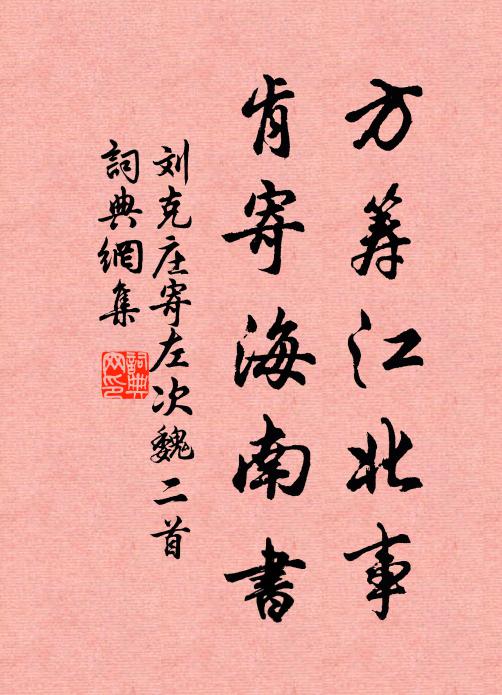 方筹江北事
肯寄海南書
刘克庄寄左次魏二首
詞典網集
詞典
网印